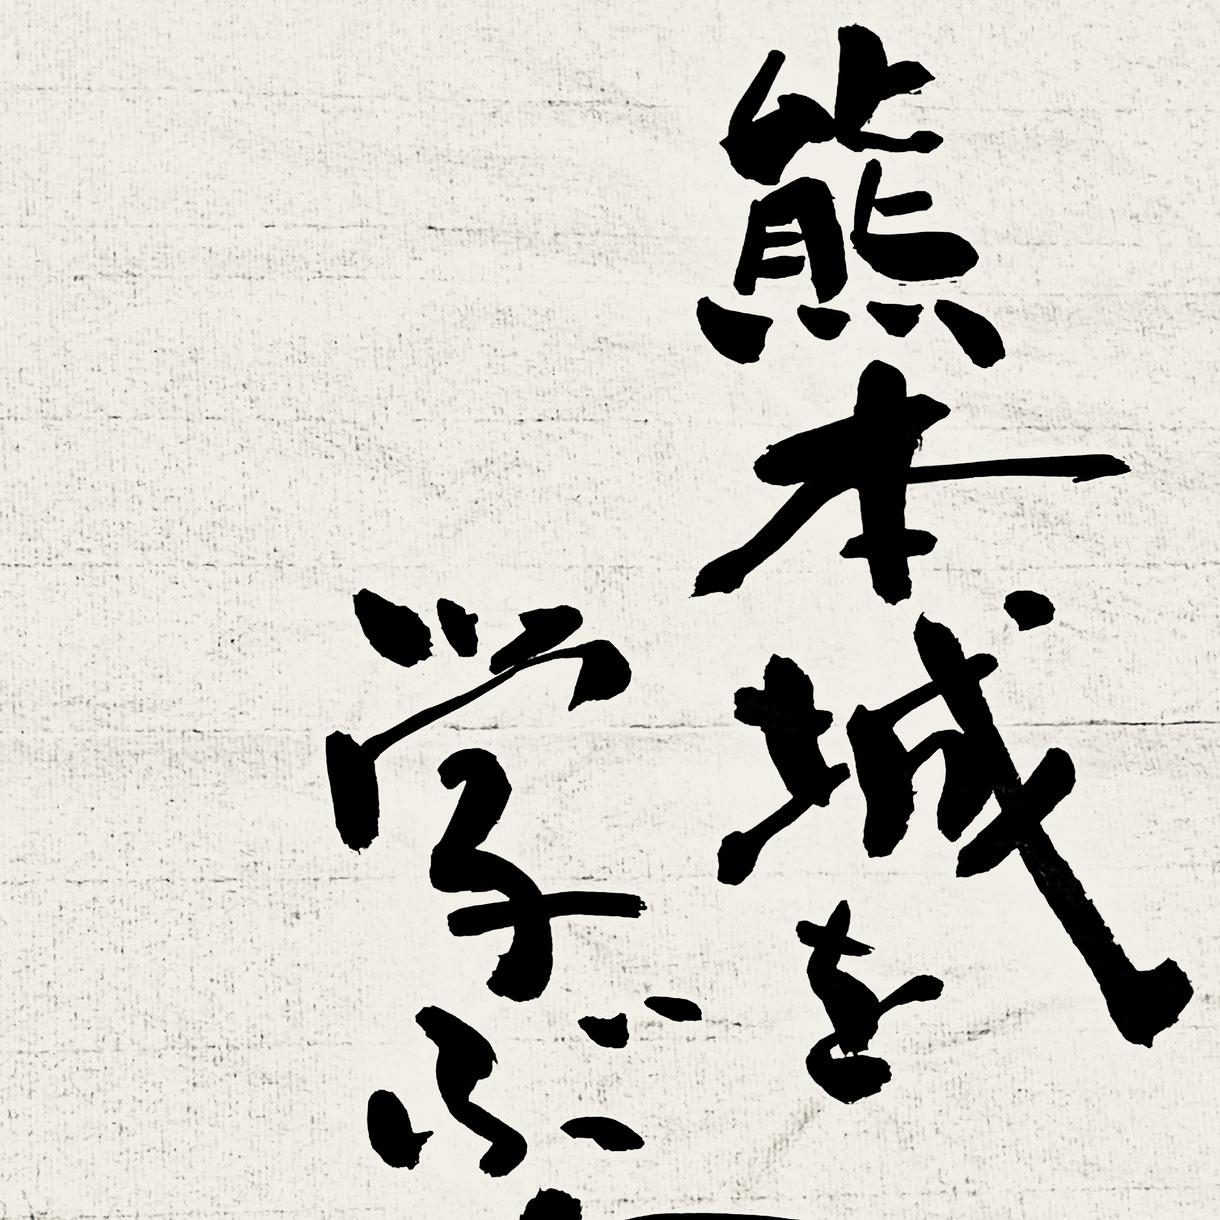 熊本城を
学ぶ